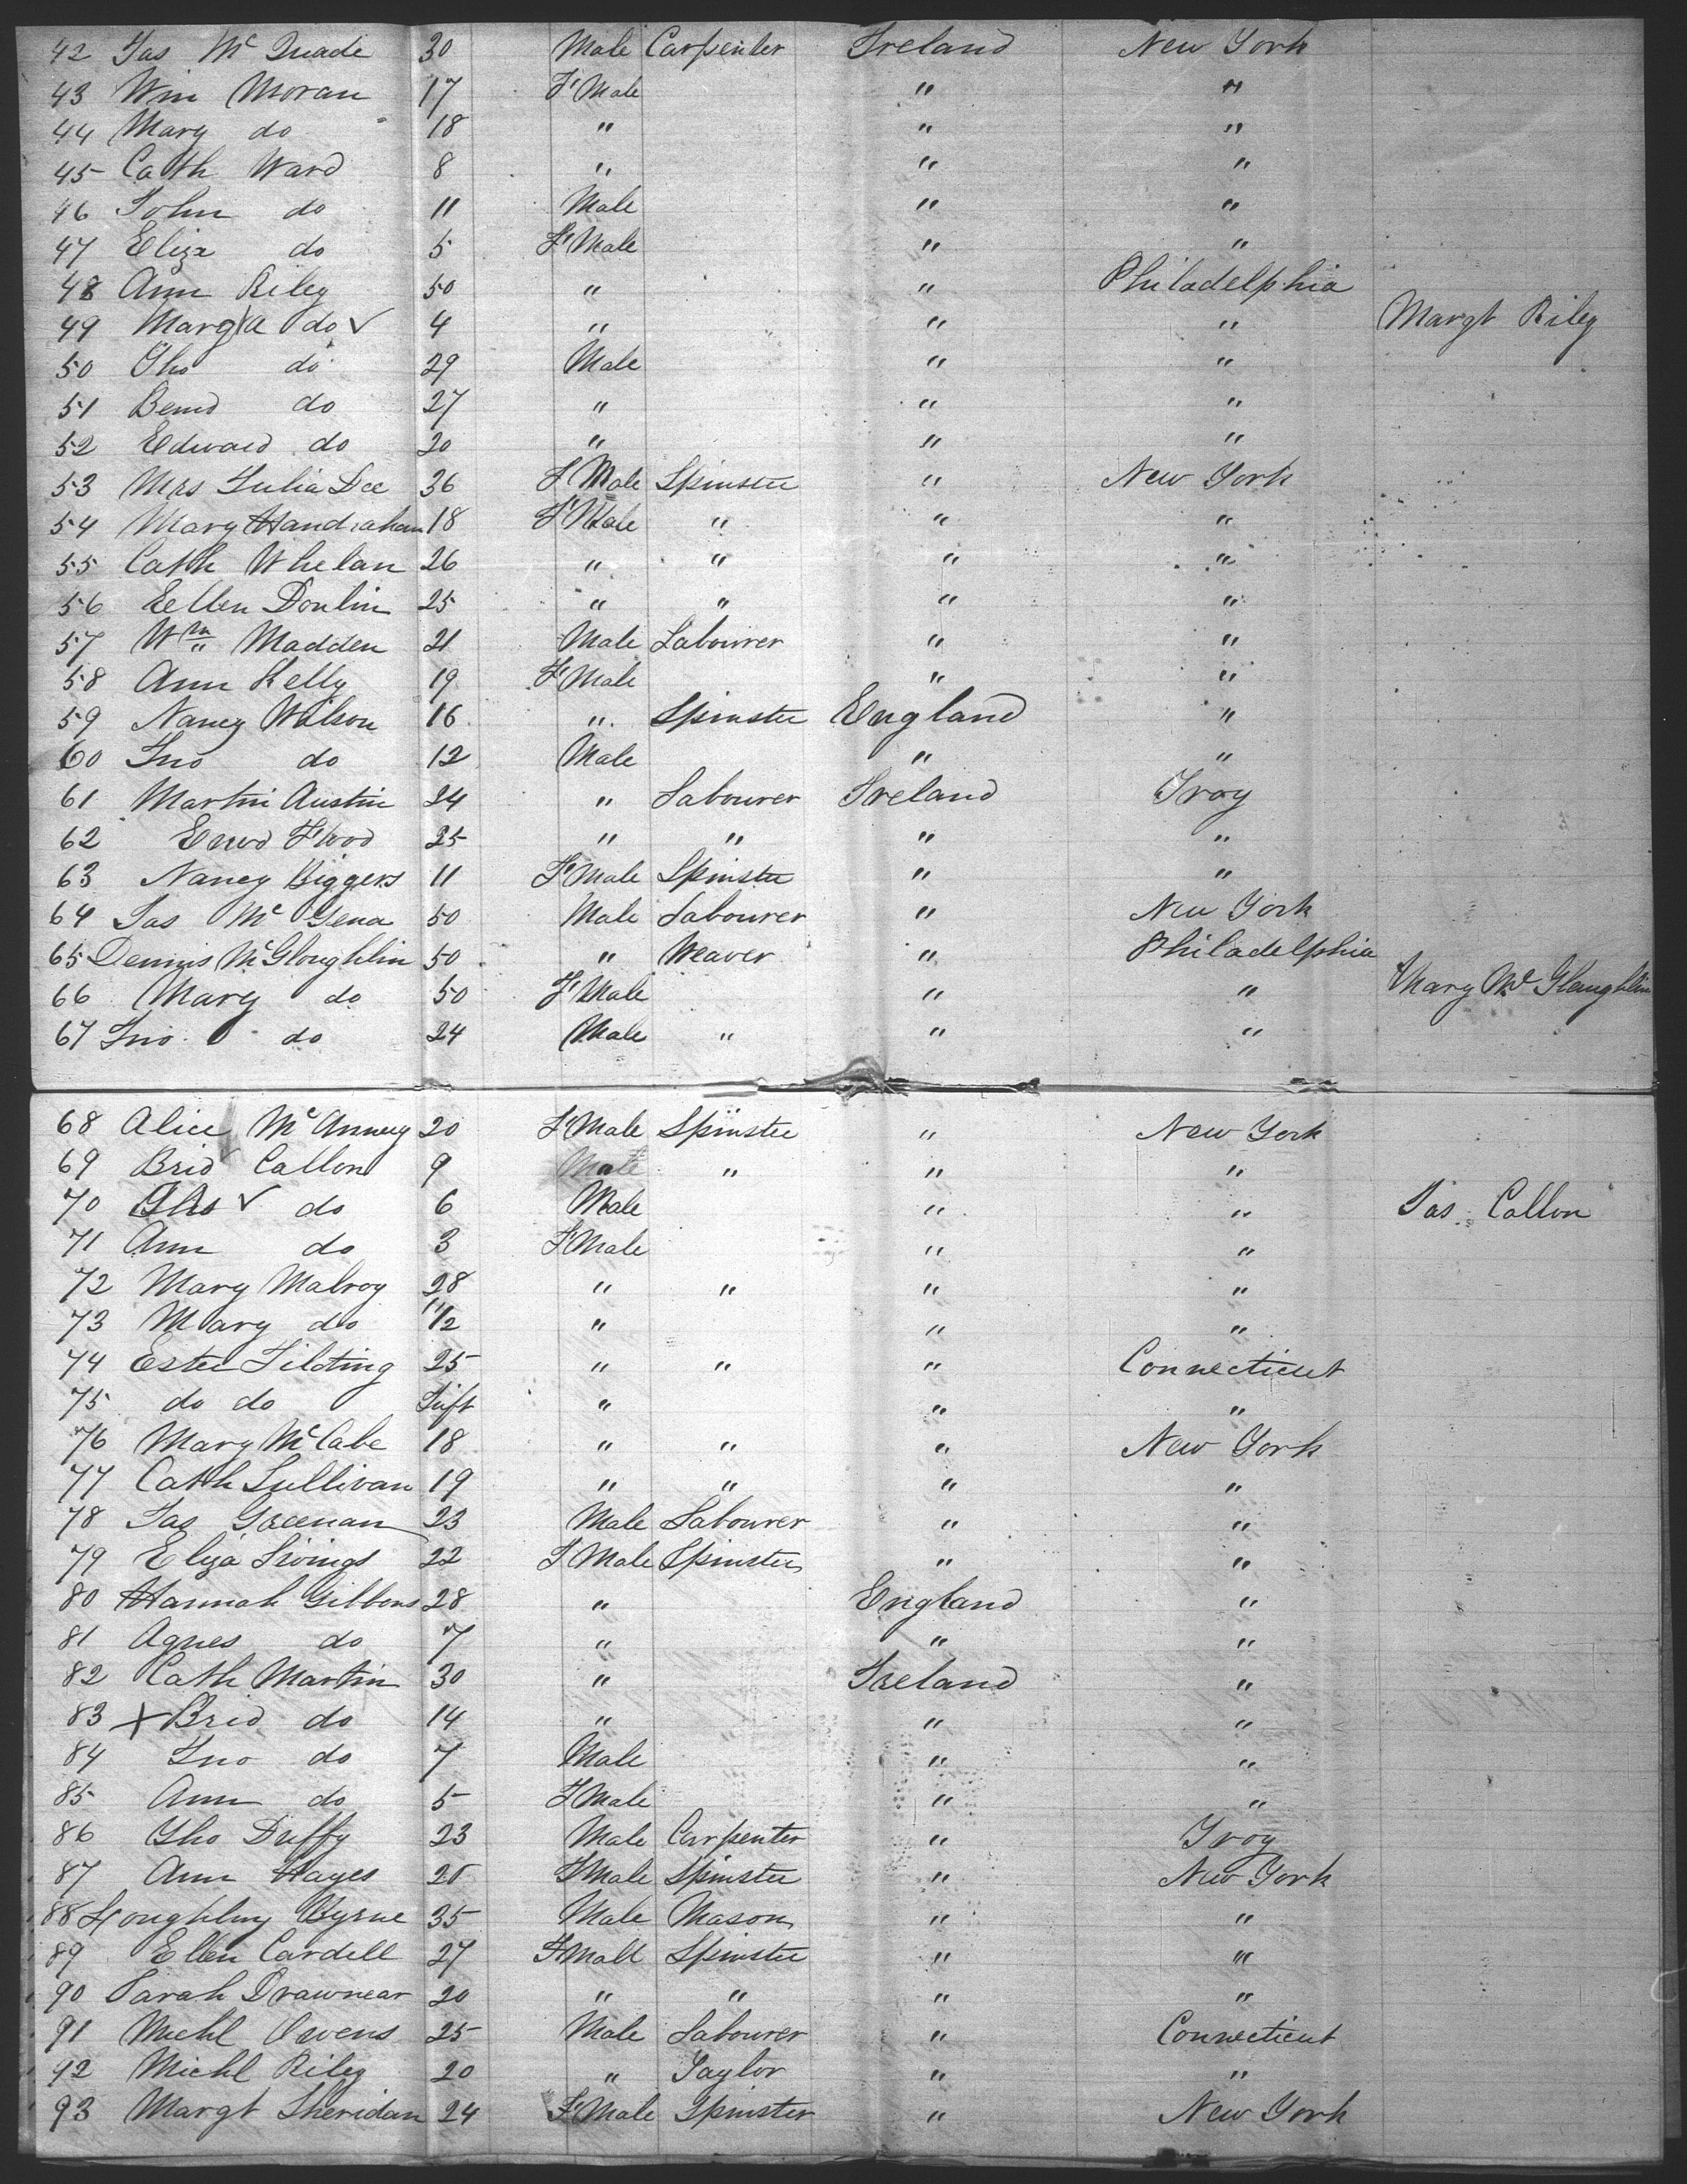 42 Jas McQuade 30 Male Carpenter Ireland New York
43 Win Moran 17 F'Male " "
44 Mary do 18 " " "
45 Cath Ward 8 " " "
46 John do 11 Male " "
47 Eliza do 5 F'Male " "
48 Ann Riley 50 " " Philadelphia
49 do ✓ 4 " " " Margt Riley
50 Tho do 29 Male " "
51 Bernd do 27 " " "
52 Edward do 20 " " "
53 Mrs Julia Dee 36 F'Male Spinster " New York
54 Mary Handrahan 18 F'Male " " "
55 Cath Whelan 26 " " " "
56 Eellen Donlin 25 " " " "
57 Wm Madden 21 Male Labourer " "
58 Ann Kelly 19 F'Male " "
59 Nancy Wilson 16 " Spinster England "
60 Jno do 12 Male " "
61 Martin Austin 24 " Labourer Ireland Troy
62 Flood 25 " " " "
63 Nancy Biggers 11 F'Male Spinster " "
64 Jas McGena 50 Male Labourer " New York
65 Dennis McGloughlin 50 " Weaver " Philadelphia
66 Mary do 50 F'Male " " Mary McGlaughlin
67 Jno do 24 Male " " "
68 Alice McAnney 20 F'Male Spinster " New York
69 Brid Callon 9 Male " " "
70 ✓ do 6 Male " " Jas Callon
71 Ann do 3 F'Male " "
72 Mary Malroy 28 " " " "
73 Mary do 11/12 " " "
74 Ester 25 " " " Connecticut
75 do do Inft " " "
76 Mary McCabe 18 " " " New York
77 Cath Sullivan 19 " " " "
78 Jas Greenan 23 Male Labourer " "
79 Eliza 22 F'Male Spinster " "
80 Hannah Gibbons 28 " England "
81 Agnes do 7 " " "
82 Cath Martin 30 " Ireland "
83 X Brid do 14 " " "
84 Jno do 7 Male " "
85 Ann do 5 F'Male " "
86 Tho Duffy 23 Male Carpenter " Troy
87 Ann Hayes 20 F'Male Spinster " New York
88 Loughlin Byrne 35 Male Mason " "
89 Ellen Cardell 27 F'Male Spinster " "
90 Sarah Drawnear 20 " " " "
91 Michl Owens 25 Male Labourer " Connecticut
92 Michl Riley 20 " Taylor " "
93 Margt Sheridan 24 F'Male Spinster " New York